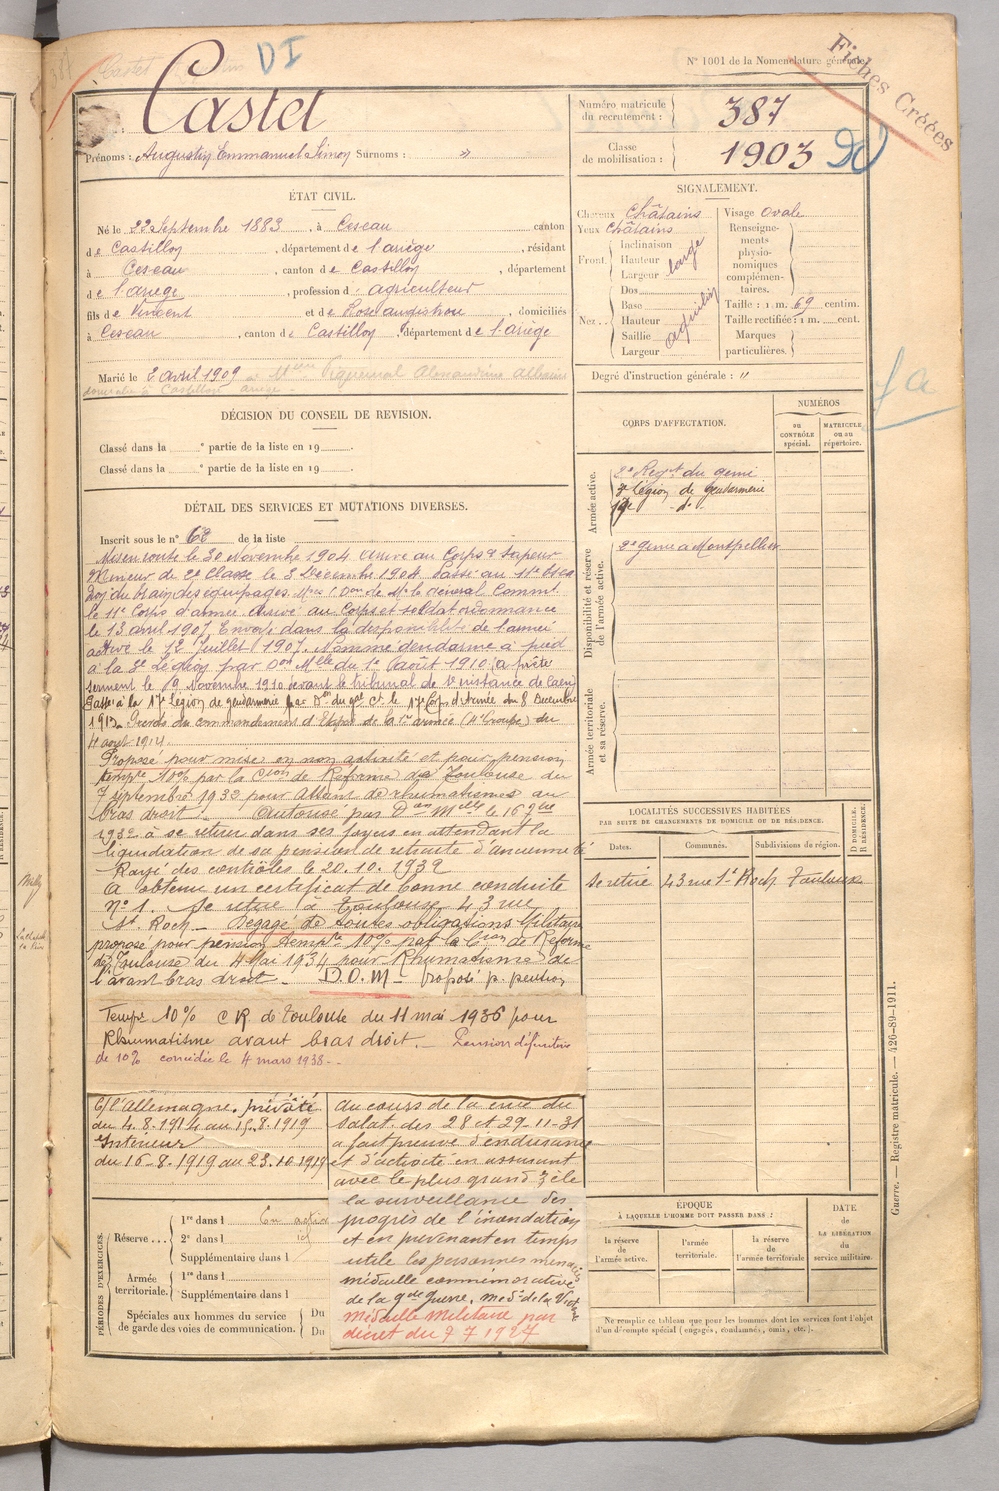 DI
N° 1001 de la Nomenclature générale
Fiches Créées
Castet
Numéro matricule du recrutement : 387
Prénoms : Augustin Emmanuel Simon Surnoms : »
Classe de mobilisation : 1903
ÉTAT CIVIL.
Né le 22 Septembre 1883, à Cescau canton
de Castillon, département de l'ariège, résidant
à Cescau, canton de Castillon, département
de l'ariège, profession d' agriculteur
fils de Vincent et de Rose augistrou, domiciliés
à Cescau, canton de Castillon, département de l'ariège
Marié le 2 avril 1909 à Piquemal Alexandrine
domiciliée à Castillon ariège
SIGNALEMENT.
Cheveux Châtains
Yeux Châtains
Front. Inclinaison
Hauteur
Largeur large
Nez.. Dos
Base
Hauteur
Saillie
Largeur
aquilin
Visage Ovale
Renseignements physionomiques complémentaires.
Taille : 1 m. 69 centim.
Taille rectifiée : 1 m. cent.
Marques particulières.
Degré d'instruction générale : "
DÉCISION DU CONSEIL DE REVISION.
Classé dans la e partie de la liste en 19
Classé dans la e partie de la liste en 19
CORPS D'AFFECTATION.
NUMÉROS
au CONTRÔLE spécial.
MATRICULE ou au répertoire.
Armée active.
2e Régt du génie
3e Légion de gendarmerie
17e d°
Disponibilité et réserve de l'armée active.
2e génie à Montpellier
Armée territoriale et sa réserve.
DÉTAIL DES SERVICES ET MUTATIONS DIVERSES.
Inscrit sous le n° 62 de la liste
Mis en route le 30 Novembre 1904 arrivé au Corps & sapeur
Mineur de 2e Classe le 2 Décembre 1904. Passé au 11e Esca
dron du train des équipages. de Mr le Général Commt
le 11e Corps d'armée. Arrivé au Corps et soldat ordonnance
le 13 avril 1907. Envoyé dans la disponibilité de l'armée
active le 12 Juillet 1907. Nommé Gendarme à pied
à la 3e Légion par Don Mlle du 1er août 1910 (a prêté
serment le 19 Novembre 1910 devant le tribunal de 1re instance de Caen)
Passé à la 17e Légion de gendarmerie par Don du gal Ct le 17e Corps d'Armée du 8 Décembre
1913. Prévôté du commandement d'Etapes de la 1re armée (4e Groupe) du
4 août 1914.
Proposé pour mise en non activité et pour pension
tempre 10% par la Cion de Réforme de Toulouse du
7 septembre 1932 pour Atteint de rhumatismes au
bras droit. Autorisé par Don Mlle le 16 7bre
1932 à se retirer dans ses foyers en attendant la
liquidation de sa pension de retraite d'ancienneté
Rayé des contrôles le 20.10.1932
A obtenu un certificat de bonne conduite
N° 1. Se retire à Toulouse 43 rue
St. Roch. Dégagé de toutes obligations Militaires
proposé pour pension tempre 10% par la Cion de Réforme
de Toulouse du 4 Mai 1934 pour Rhumatisme de
l'avant bras droit. D.O.M. Proposé p. pension
Tempre 10% CR de Toulouse du 11 mai 1936 pour
Rhumatisme avant bras droit. Pension définitive
de 10% concédée le 4 mars 1938.
LOCALITÉS SUCCESSIVES HABITÉES
PAR SUITE DE CHANGEMENTS DE DOMICILE OU DE RÉSIDENCE.
Dates.
Communes.
Subdivisions de région.
D DOMICILE. R RÉSIDENCE.
Se retire 43 rue St Roch Toulouse
C/ l'Allemagne. prévôté
du 4.8.1914 au 15.8.1919
Intérieur
du 16-8.1919 au 23.10.1919
Au cours de la crue du
Salat des 28 et 29-11-31
a fait preuve d'endurance
et d'activité en assurant
avec le plus grand zèle
la surveillance des
progrès de l'inondation
et en prévenant en temps
utile les personnes menacées
médaille commémorative
de la gde guerre. med. de la Victoire
Médaille Militaire par
décret du 9 7 1927
PÉRIODES D'EXERCICES.
Réserve... 1re dans l En activ
2e dans l id
Supplémentaire dans l
Armée territoriale. 1re dans l
Supplémentaire dans l
Spéciales aux hommes du service de garde des voies de communication. Du
Du
ÉPOQUE
À LAQUELLE L'HOMME DOIT PASSER DANS :
la réserve de l'armée active.
l'armée territoriale.
la réserve de l'armée territoriale
DATE de LA LIBÉRATION du service militaire.
Ne remplir ce tableau que pour les hommes dont les services font l'objet
d'un décompte spécial (engagés, condamnés, omis, etc.)
Guerre. — Registre matricule. — 426-89-1911.